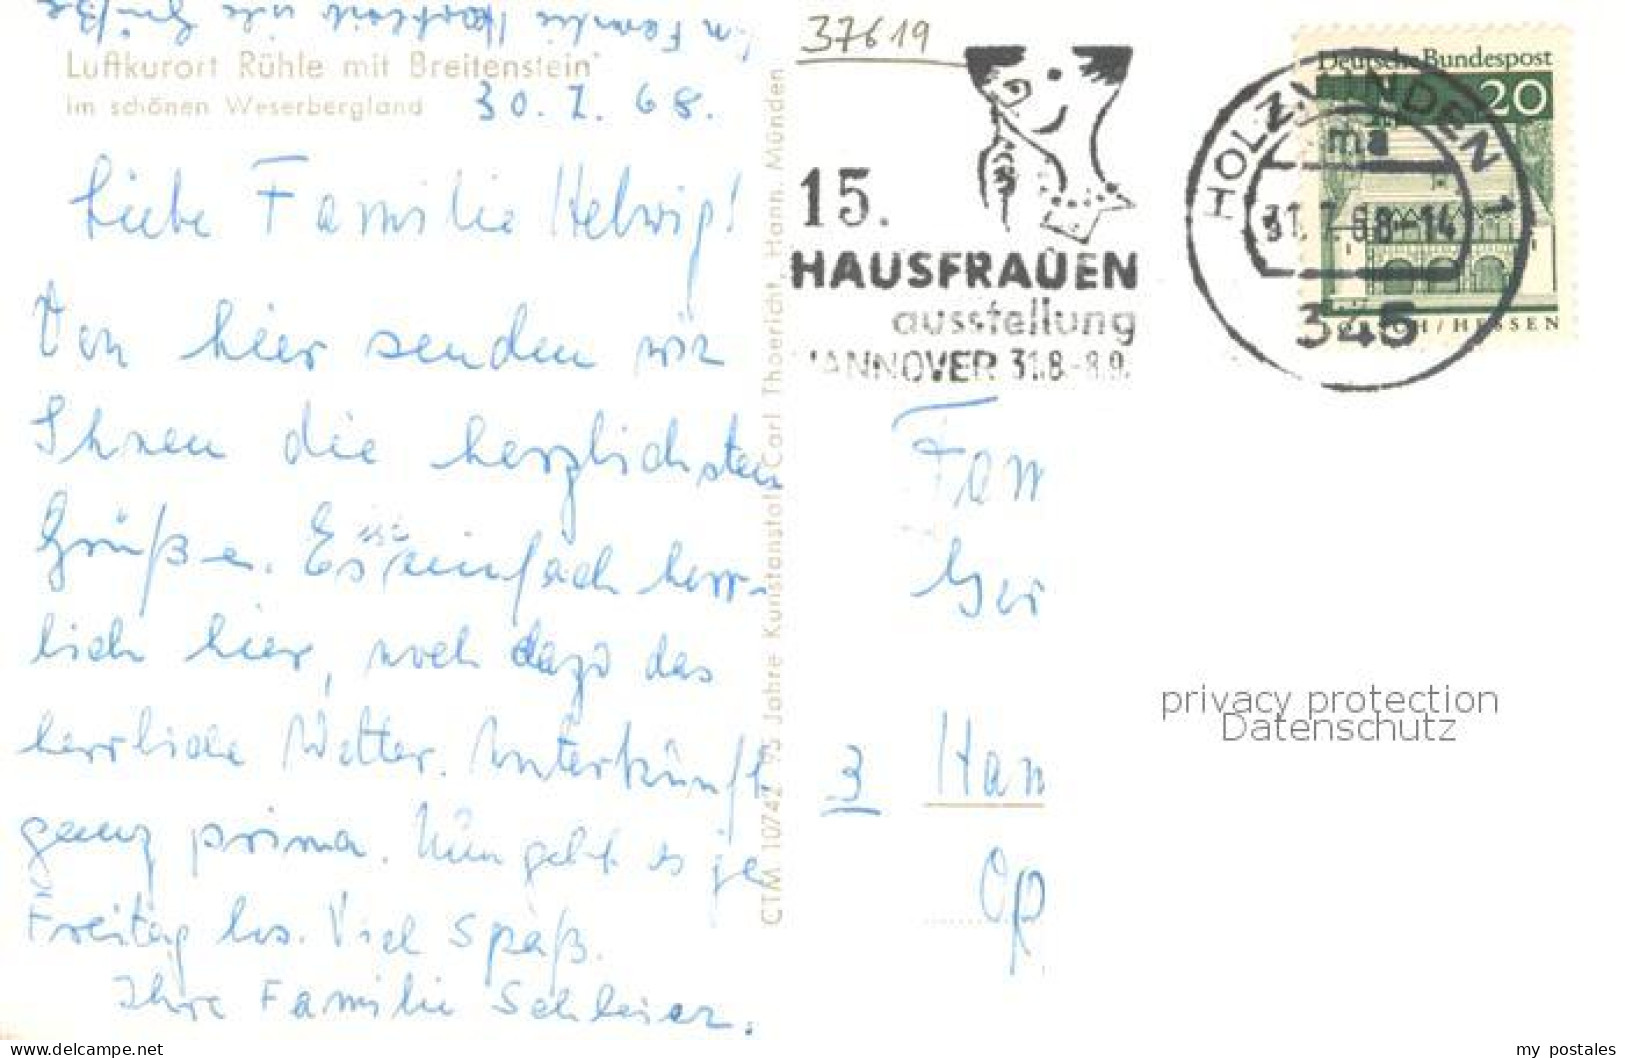 Luftkurort Rühle mit Breitenstein
im schönen Weserbergland
30.7.68.
Liebe Familie Helwig!
Von hier senden wir
Ihnen die herzlichsten
Grüße. Es ist einfach herr-
lich hier, noch dazu das
herrliche Wetter. Unterkünft
ganz prima. Nun geht es ja
Freitag los. Viel Spaß.
Ihre Familie Schleier.
CTM 10742 95 Jahre Kunstanstalt Carl Thoericht, Hann. Münden
37619
15.
HAUSFRAUEN
ausstellung
HANNOVER 31.8.-8.9.
Deutsche Bundespost
20
HOLZMINDEN 1
ma
31.7.68-14
345
LORSCH/HESSEN
Fam
Ger
3 Han
Op
privacy protection
Datenschutz
delcampe.net
my_postales